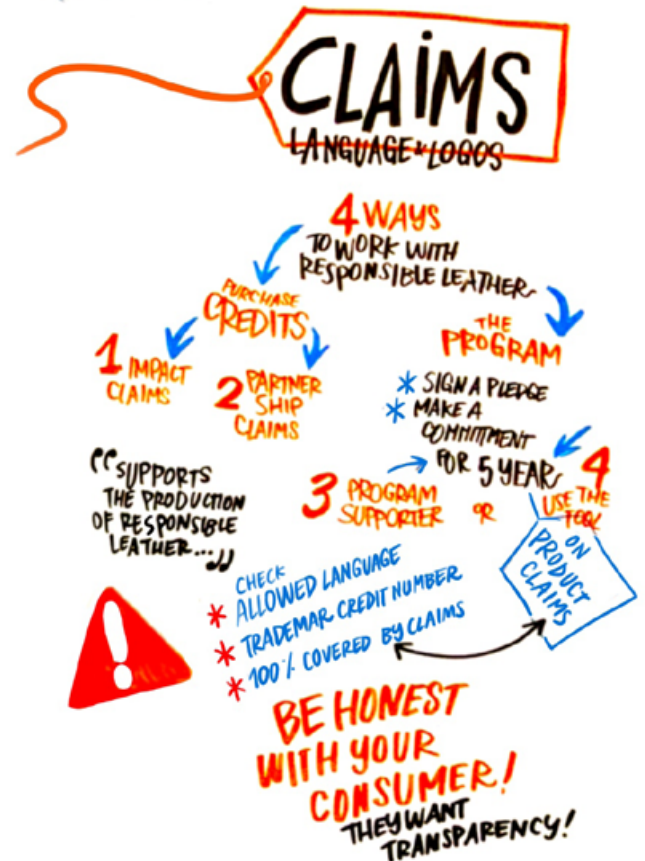 CLAIMS
LANGUAGE & LOGOS
4 WAYS
TO WORK WITH
RESPONSIBLE LEATHER
PURCHASE
CREDITS
1 IMPACT
CLAIMS
2 PARTNER
SHIP
CLAIMS
THE
PROGRAM
* SIGN A PLEDGE
* MAKE A
COMMITMENT
FOR 5 YEARS
3 PROGRAM
SUPPORTER
OR
4
USE THE
TOOL
ON
PRODUCT
CLAIMS
"SUPPORTS
THE PRODUCTION
OF RESPONSIBLE
LEATHER..."
!
CHECK
* ALLOWED LANGUAGE
* TRADEMAR CREDIT NUMBER
* 100% COVERED BY CLAIMS
BE HONEST
WITH YOUR
CONSUMER!
THEY WANT
TRANSPARENCY!